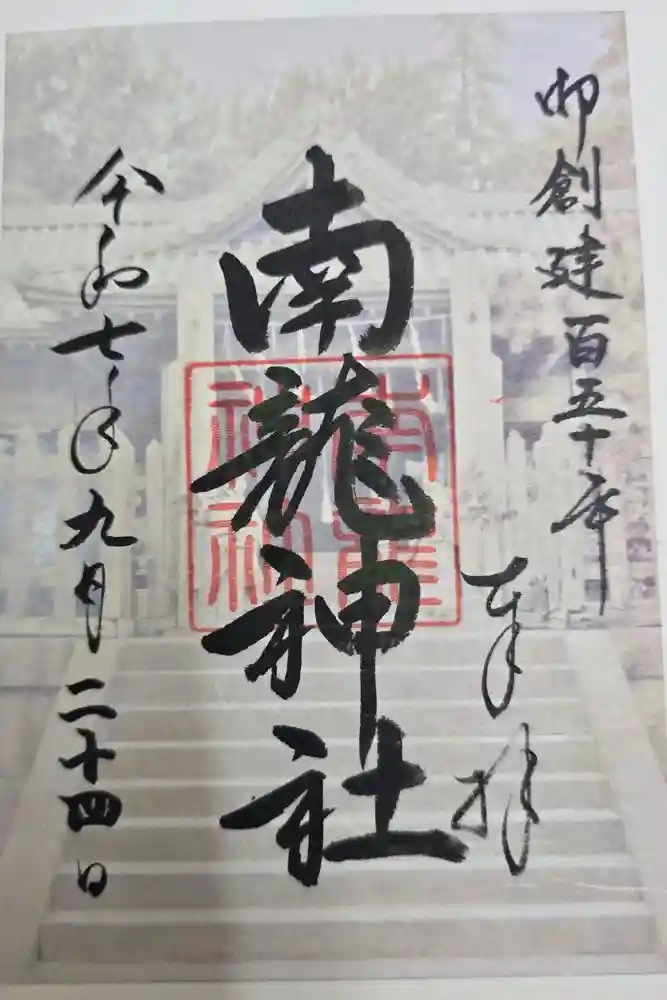 御創建百五十年
奉拝
南龍神社
南龍
神社
令和七年九月二十四日